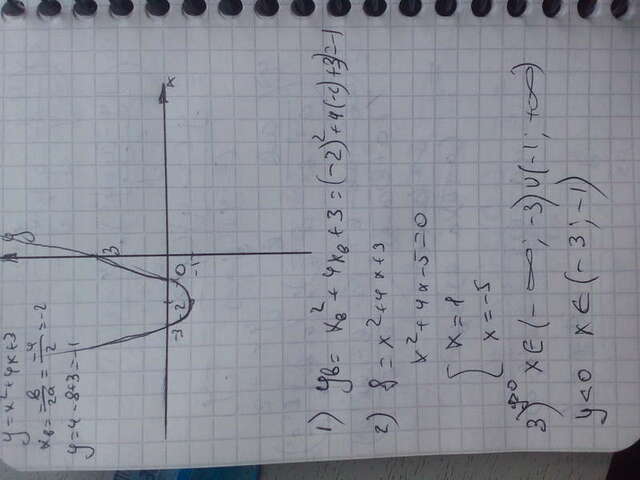 y = x² + 4x + 3
x_в = -в/2a = -4/2 = -2
y = 4 - 8 + 3 = -1
y
x
3
0
-1
2
-3
1) y_в = x_в² + 4x_в + 3 = (-2)² + 4(-2) + 3 = -1
2) 8 = x² + 4x + 3
x² + 4x - 5 = 0
[ x = 1
x = -5
3) y>0 x ∈ (-∞; -3) ∪ (-1; +∞)
y<0 x ∈ (-3; -1)